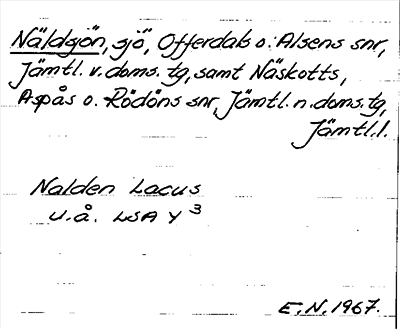 Näldsjön, sjö, Offerdals o. Alsens snr,
Jämtl. v. doms. tg, samt Näskotts,
Aspås o. Rödöns snr, Jämtl. n. doms. tg,
Jämtl. l.
Nalden Lacus
u.å. LSA Y 3
E.N. 1967.